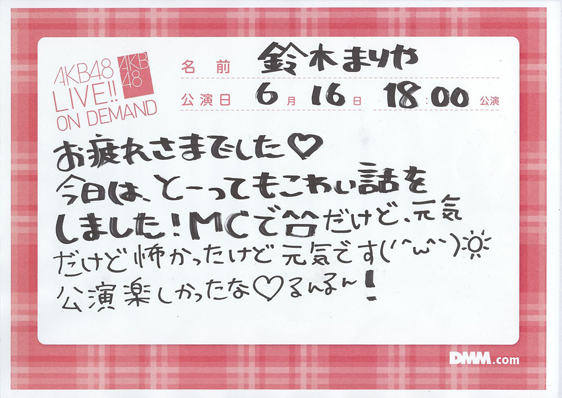 AKB48
LIVE!!
ON DEMAND
AKB
48
名前 鈴木まりや
公演日 6月16日 18:00公演
お疲れさまでした♡
今日は、とーってもこわい話を
しました！MCで^^だけど、元気
だけど怖かったけど元気です(´^ω^`)☼
公演楽しかったな♡るんるん！
DMM.com